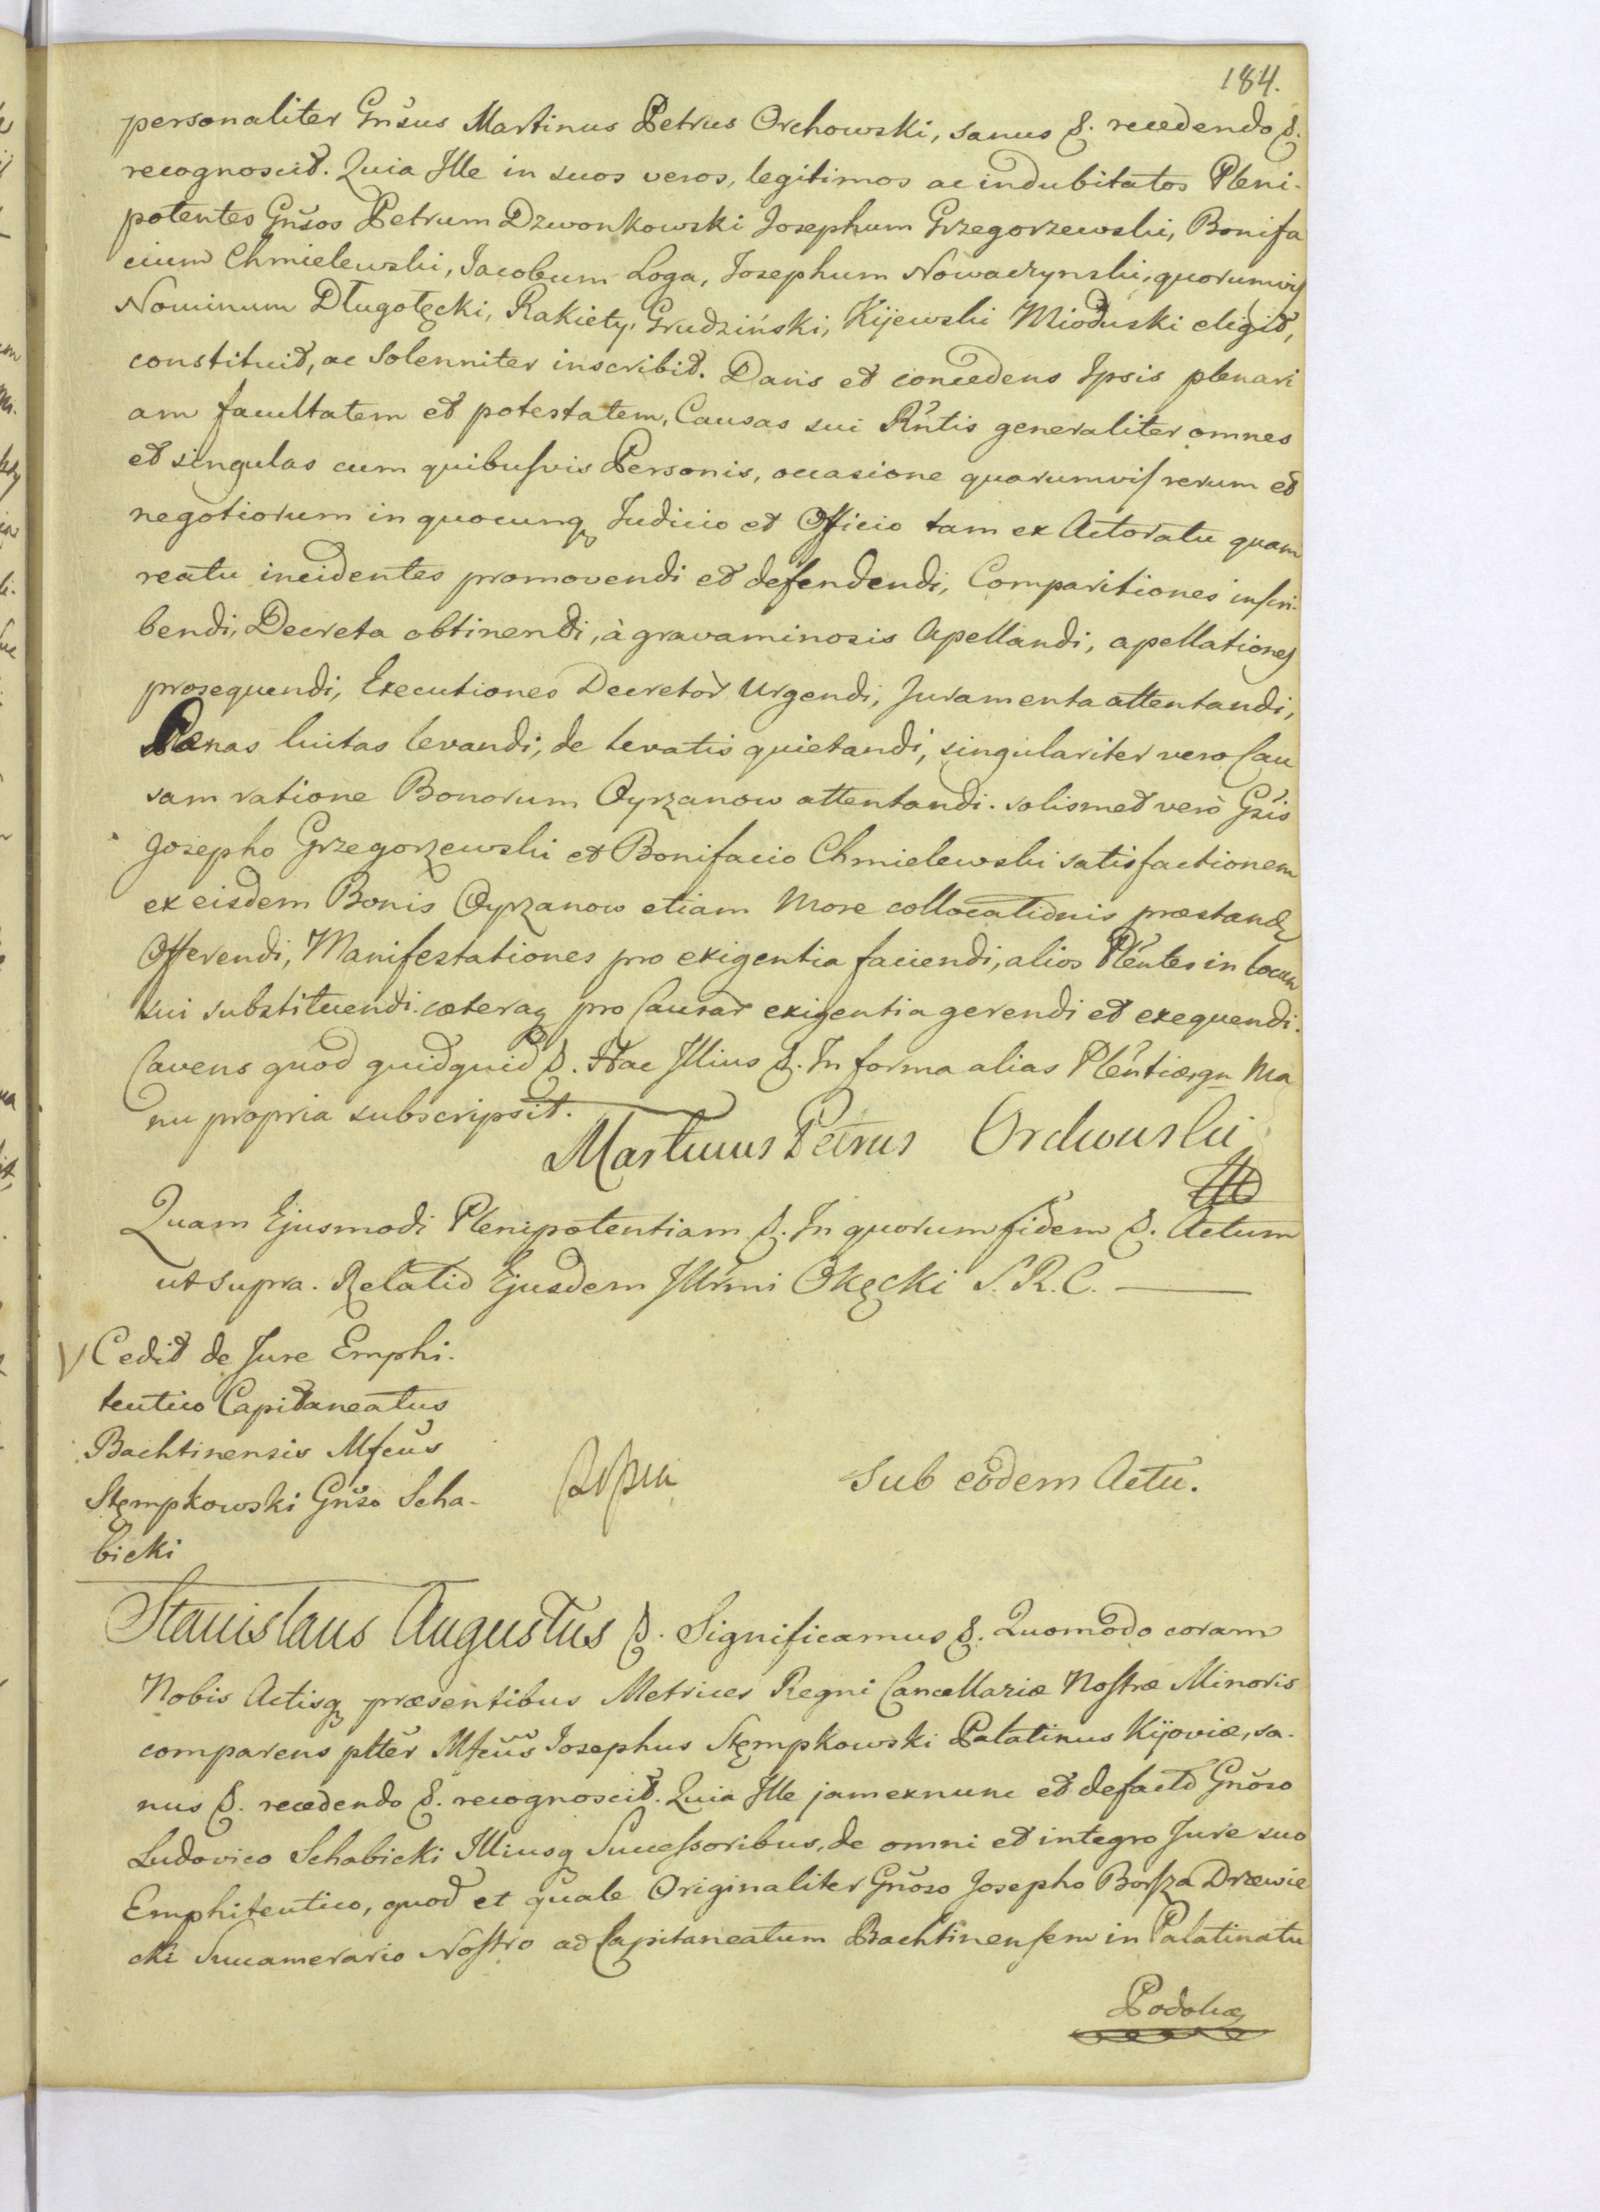 184.
personaliter Gnŝus Martinus Petrus Orchowski, sanus &. recedendo &.
recognoscit. Quia Ille in suos veros, legitimos ac indubitatos Pleni-
potentes Gnŝos Petrum Dzwonkowski Josephum Grzegorzewski, Bonifa
cium Chmielewski, Jacobum Loga, Josephum Nowaczynski, quorumvis
Nominum Długołęcki, Rakiety, Grudziński, Kijewski Mioduski eligit,
constituit, ac Solenniter inscribit. Dans et concedens Ipsis plenari
am facultatem et potestatem, Causas sui Rn̄tis generaliter omnes
et singulas cum quibusvis Personis, occasione quarumvis rerum et
negotiorum in quocunq Judicio et Officio tam ex Actoratu quam
reatu incidentes promovendi et defendendi, Comparitiones inscri-
bendi, Decreta obtinendi, à gravaminosis Apellandi, apellationes
prosequendi, Executiones Decretor̄ Urgendi, Juramenta attentandi,
Pænas luitas levandi, de levatis quietandi, singulariter vero Cau
sam ratione Bonorum Oyrzanow attentandi. solismet verò Gn̄sis
Josepho Grzegorzewski et Bonifacio Chmielewski satisfactionem
ex eisdem Bonis Oyrzanow etiam More collocationis præstandæ
Offerendi, Manifestationes pro exigentia faciendi, alios Pl̄entes in locum
sui substituendi. cæteraq pro Causar̄ exigentia gerendi et exequendi.
Cavens quod quidquid &. Hac Illius &. In forma alias Pl̄entiæ, qn Ma
nu propria subscripsit.
Martinus Petrus Orchowski
Quam Ejusmodi Plenipotentiam &. In quorum fidem &. Actum
ut supra. Relatio Ejusdem Illr̄mi Okęcki S. R. C.
V Cedit de Jure Emphi-
teutico Capitaneatus
Bachtinensis Mfcūs
Stępkowski Gn̄so Scha-
bicki
Sub eodem Actu.
Stanislaus Augustus &. Significamus &. Quomodo coram
Nobis Actisq præsentibus Metrices Regni Cancellariæ Nostræ Minoris
comparens pltēr Mfcūs Josephus Stępkowski Palatinus Kijoviæ, sa-
nus &. recedendo &. recognoscit. Quia Ille jam exnunc et de facto Gn̄oso
Ludovico Schabicki Illiusq Successoribus, de omni et integro Jure suo
Emphiteutico, quod et quale Originaliter Gn̄oso Josepho Borsza Drzewie
cki Succamerario Nostro ad Capitaneatum Bachtinensem in Palatinatu
Podoliæ